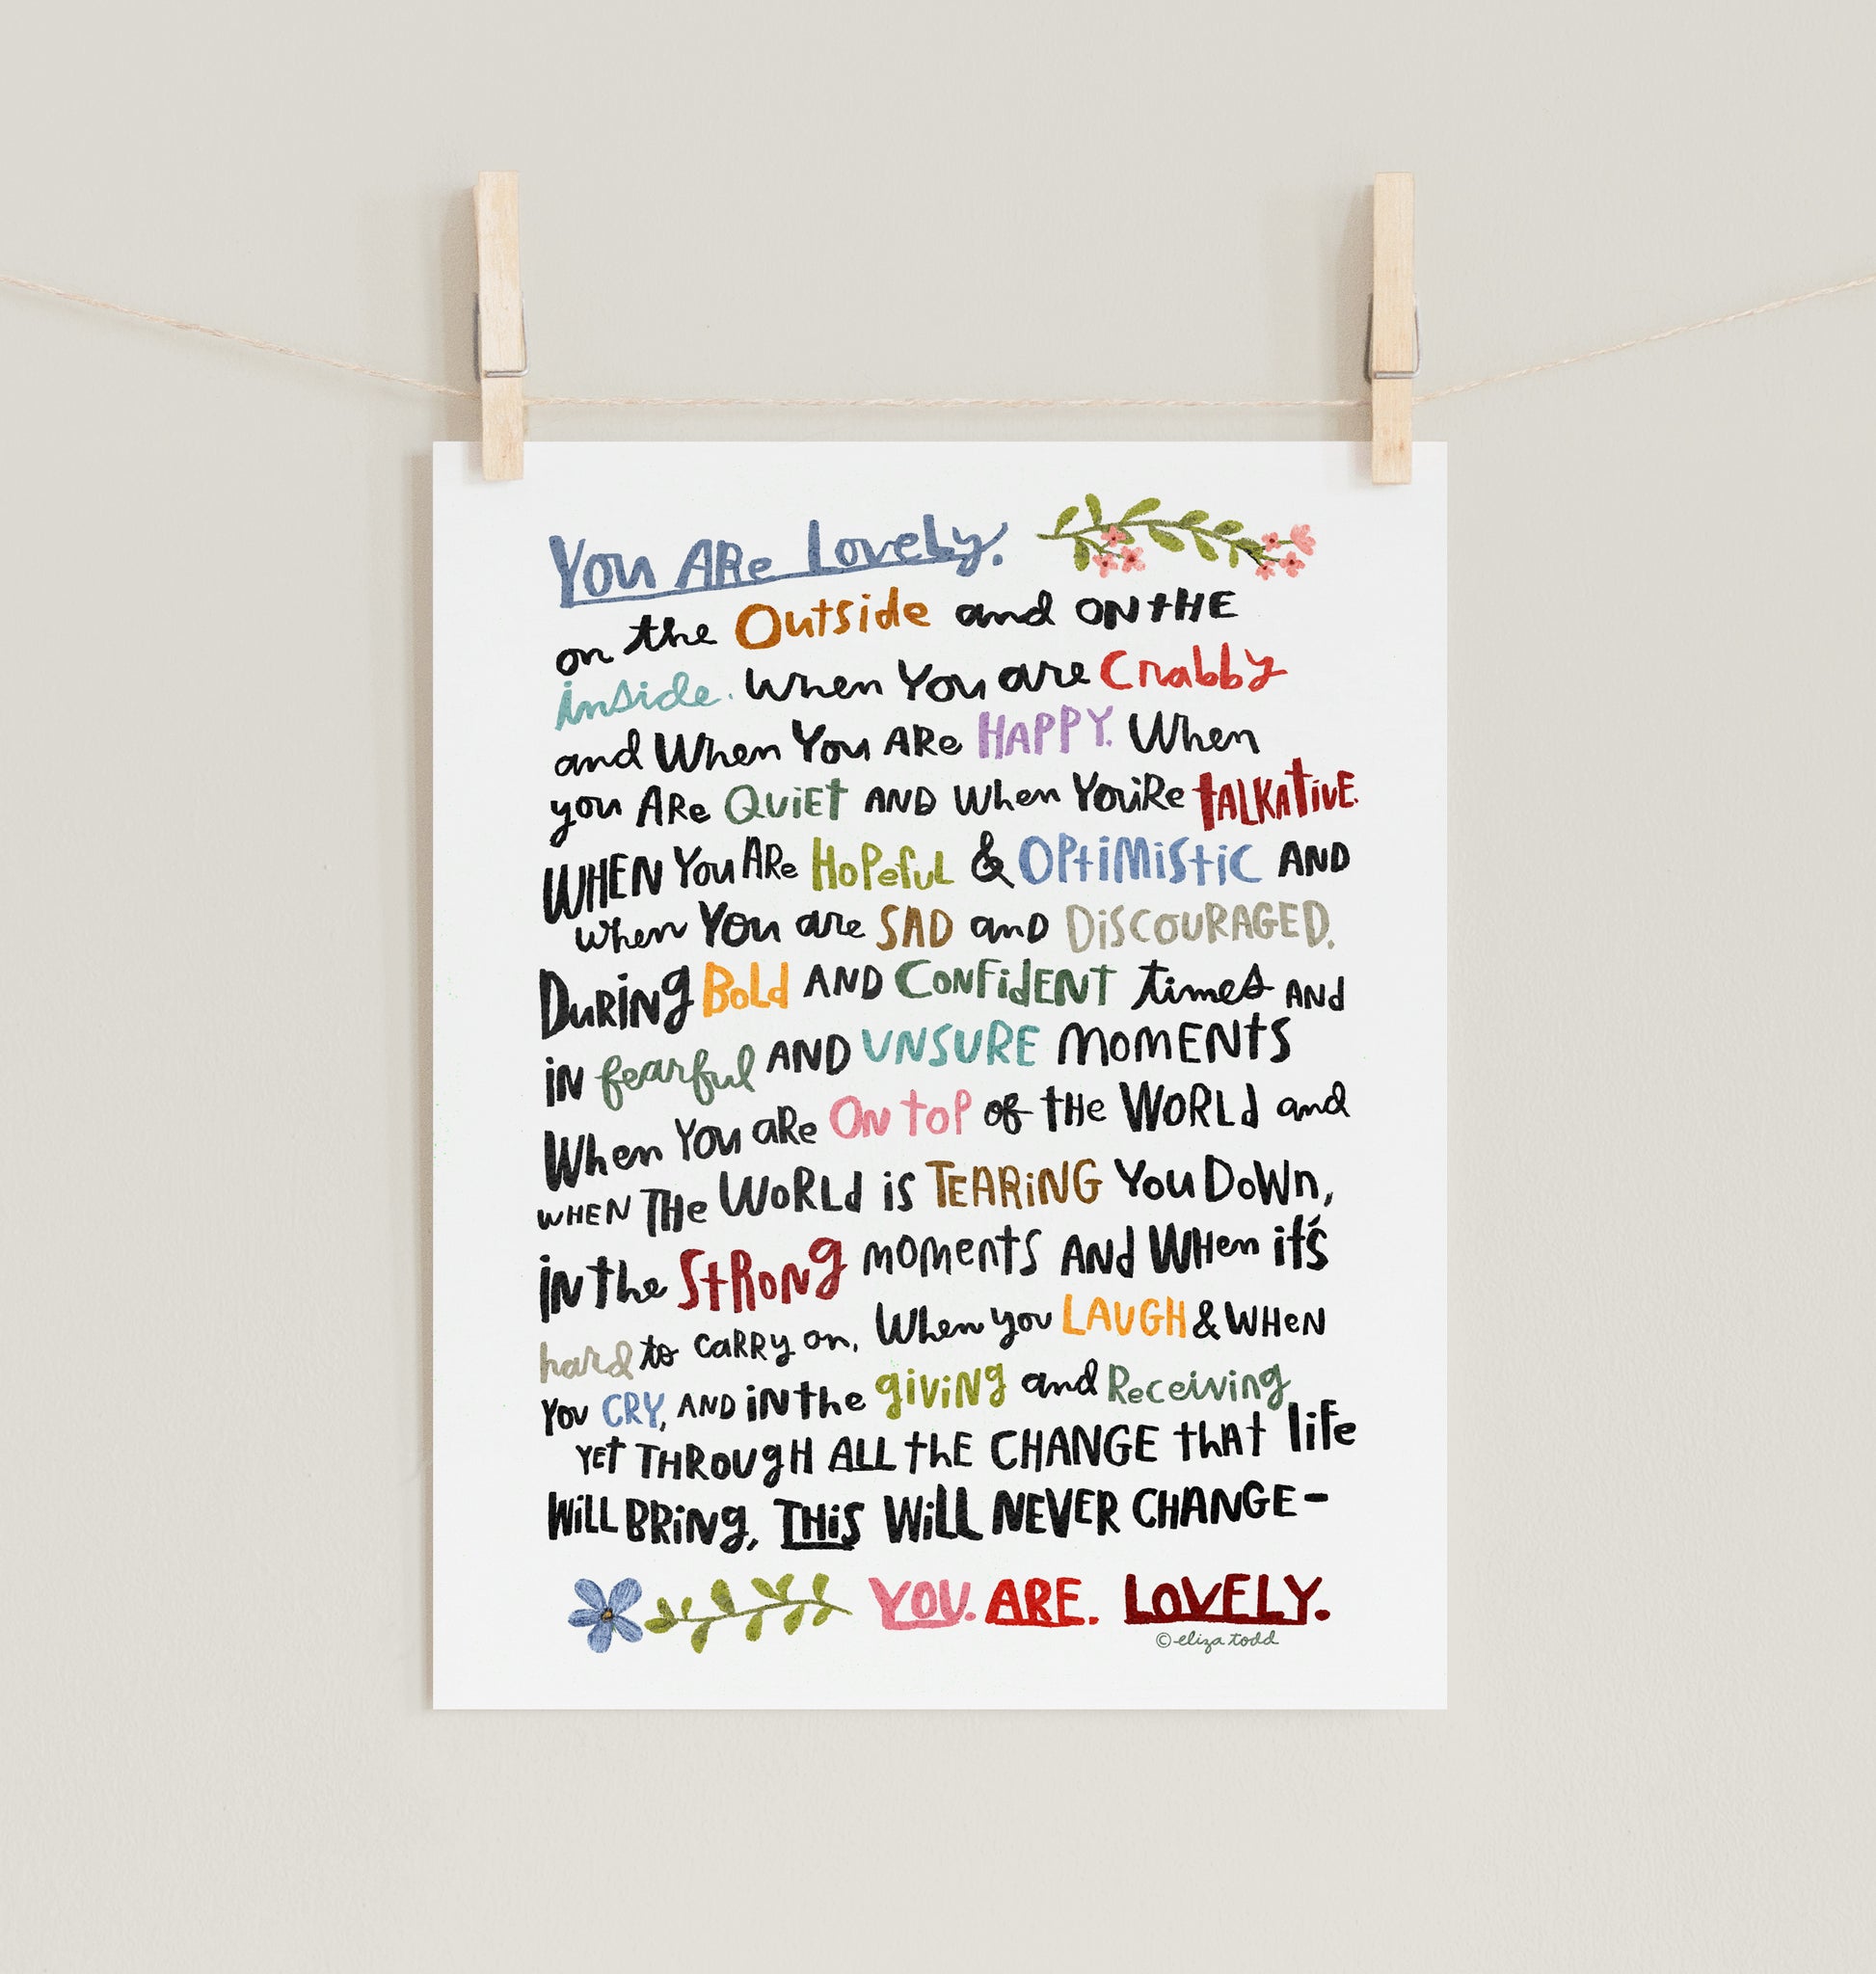 You ARe Lovely.
on the Outside and ON tHE
inside. When You are Crabby
and When You ARe HAPPY. When
you ARe QUiEt AND When You'Re tALKAtivE.
WHEN You ARe HoPeful & OPtiMistiC AND
When You are SAD and DiSCOURAGED.
DURiNg BoLd AND CoNFidENT times ANd
iN fearful AND UNSURE MoMENtS
When You aRe ON toP of tHe WoRLd and
WHEN THe WoRLd iS TEARiNG You DoWn,
iN the StRoNg moments ANd WHen it's
hard to CaRRy on. When you LAUGH & WHeN
You CRY, AND iN the giviNg and Receiving,
YEt THRoUgH ALL tHE CHANGE thAt life
WiLL BRiNg, THiS WiLL NEVER CHANGE-
YOU. ARE. LoVELY.
© eliza todd